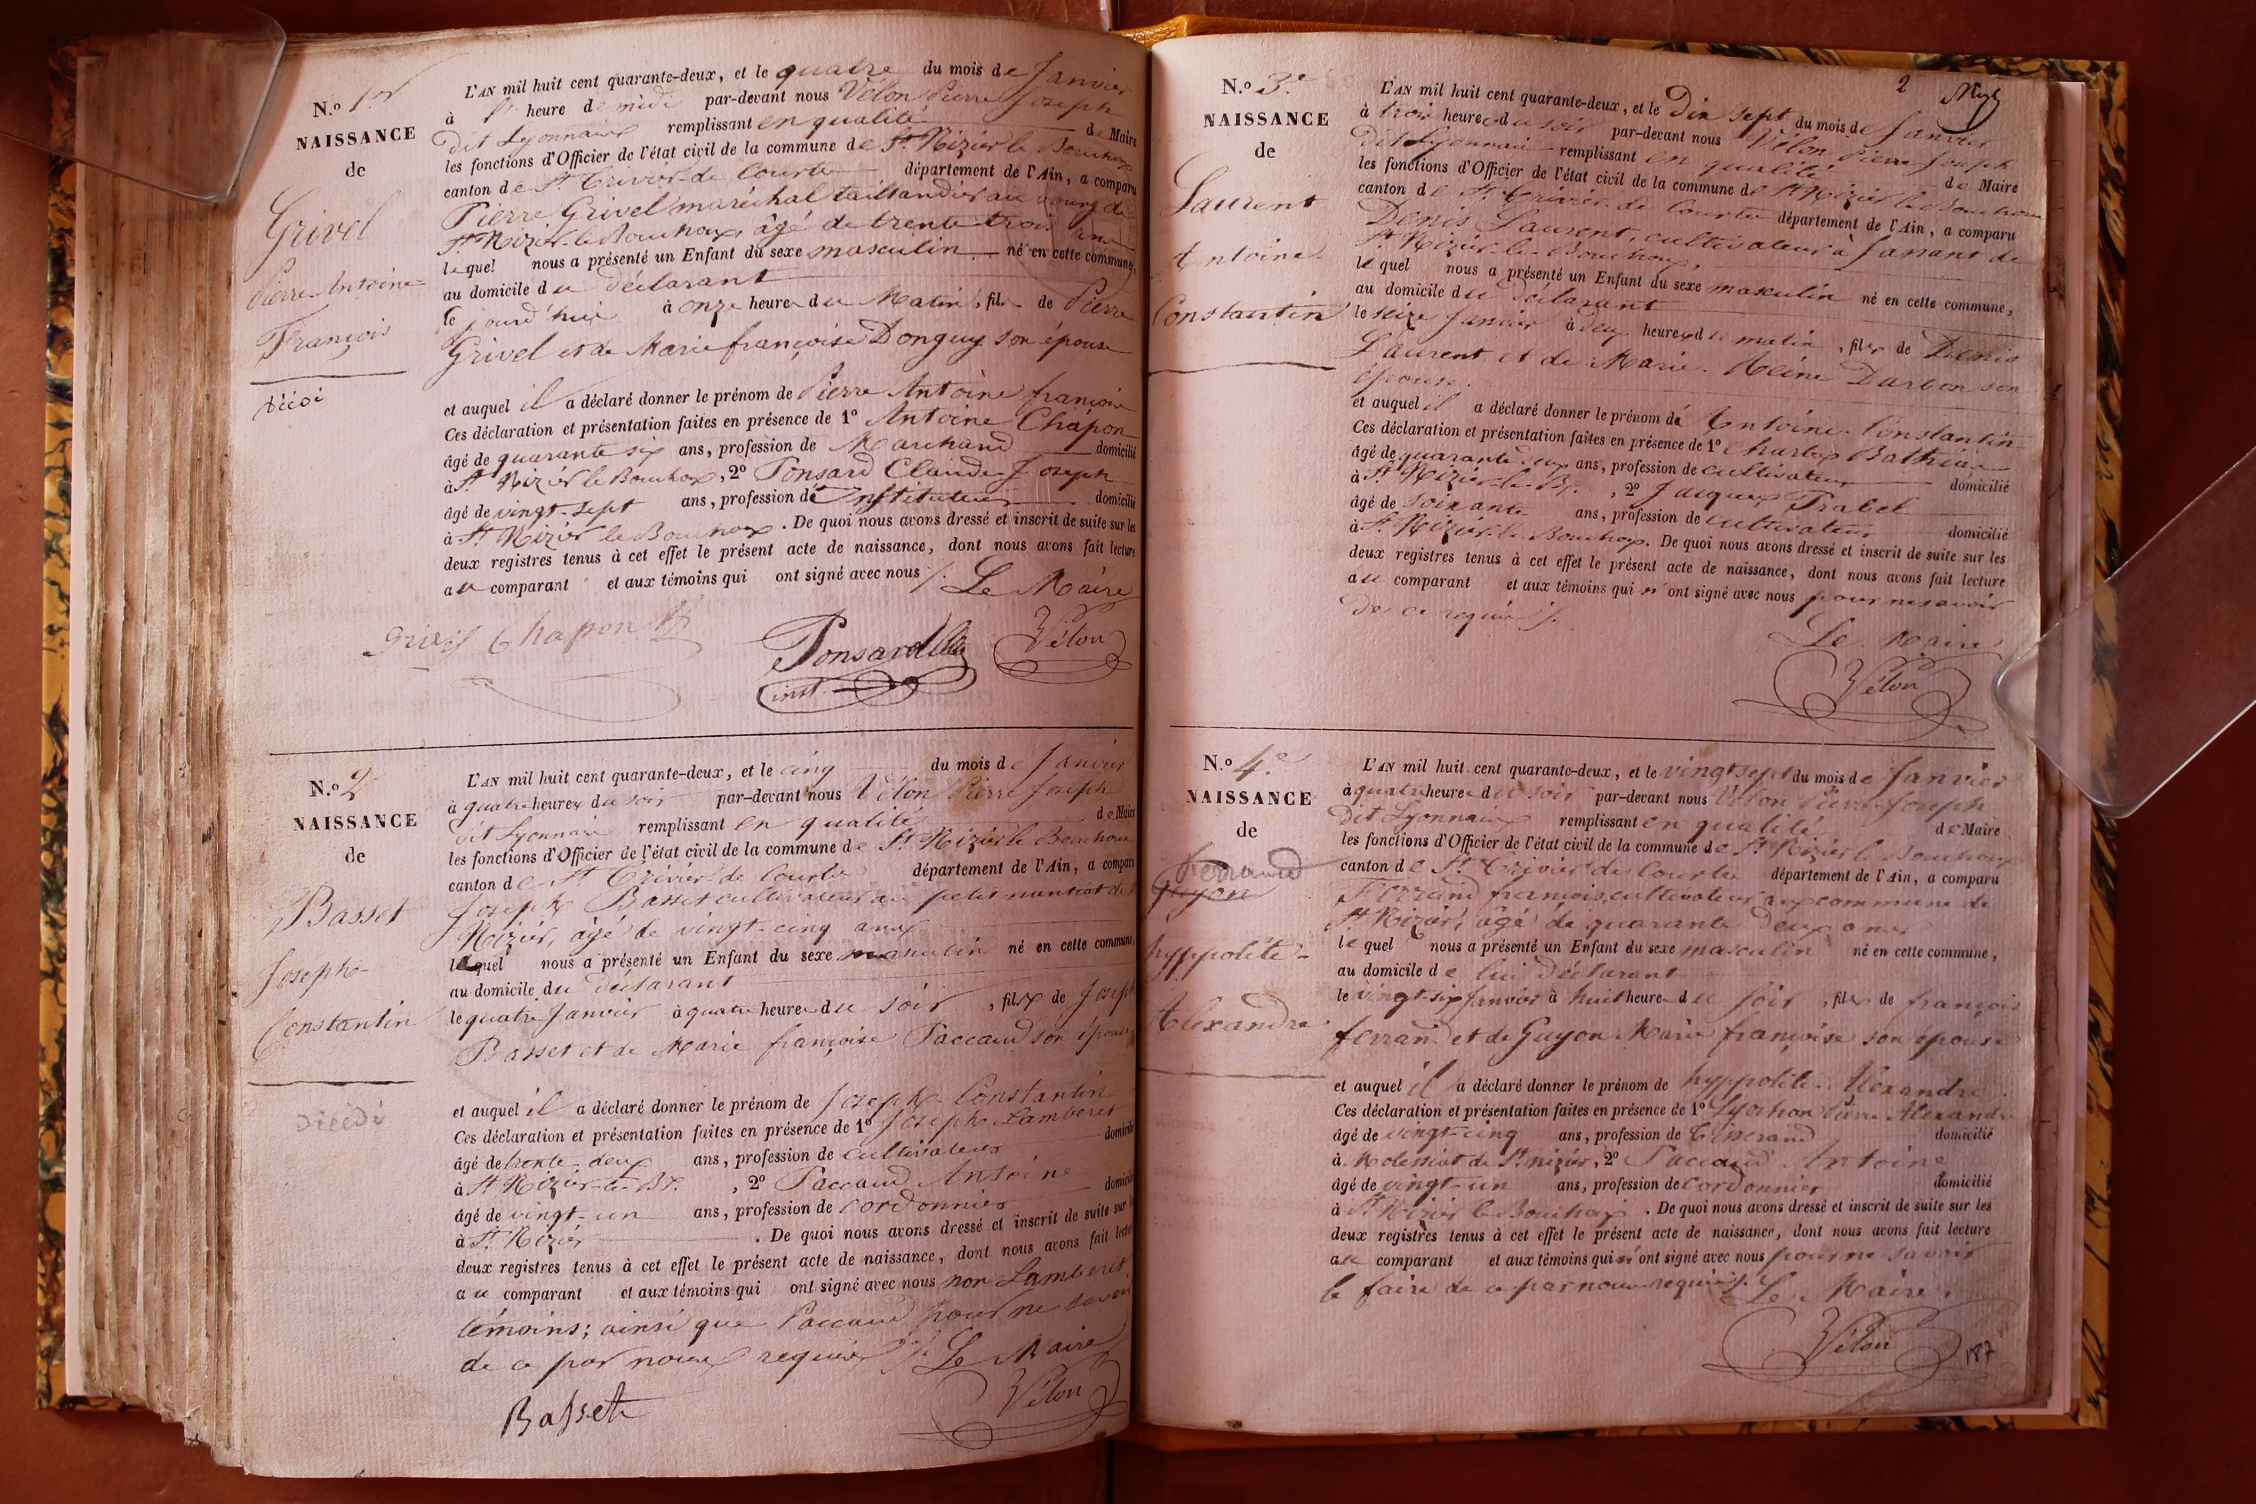 N.º 1er
NAISSANCE
de
Grivel
Pierre Antoine
François
décédé
L'AN mil huit cent quarante-deux, et le quatre du mois de Janvier
à l' heure de midi par-devant nous Vélon Pierre Joseph
dit Lyonnais remplissant en qualité de Maire
les fonctions d'Officier de l'état civil de la commune de St. Nizier le Bouchoux
canton de St Trivier de Courtes département de l'Ain, a comparu
Pierre Grivel maréchal taillandier au bourg de
St. Nizier le Bouchoux, âgé de trente trois ans
lequel nous a présenté un Enfant du sexe masculin né en cette commune,
au domicile du déclarant
le jourd'hui à onze heures du Matin, fils de Pierre
Grivel et de Marie françoise Donguy son épouse
et auquel il a déclaré donner le prénom de Pierre Antoine françois
Ces déclaration et présentation faites en présence de 1º Antoine Chapon
âgé de quarante six ans, profession de Marchand domicilié
à St. Nizier le Bouchoux, 2º Ponsard Claude Joseph
âgé de vingt-sept ans, profession d'Instituteur domicilié
à St. Nizier le Bouchoux. De quoi nous avons dressé et inscrit de suite sur les
deux registres tenus à cet effet le présent acte de naissance, dont nous avons fait lecture
au comparant et aux témoins qui ont signé avec nous ./. Le Maire
Grivel Chapon Ponsard Vélon
inst.
N.º 2
NAISSANCE
de
Basset
Joseph
Constantin
Décédé
L'AN mil huit cent quarante-deux, et le cinq du mois de Janvier
à quatre heures du soir par-devant nous Vélon Pierre Joseph
dit Lyonnais remplissant en qualité de Maire
les fonctions d'Officier de l'état civil de la commune de St. Nizier le Bouchoux
canton de St Trivier de Courtes département de l'Ain, a comparu
Joseph Basset cultivateur au petit nantrat de St
Nizier, âgé de vingt-cinq ans
lequel nous a présenté un Enfant du sexe masculin né en cette commune,
au domicile du déclarant
le quatre Janvier à quatre heures du soir, fils de Joseph
Basset et de Marie françoise Paccaud son épouse
et auquel il a déclaré donner le prénom de Joseph Constantin
Ces déclaration et présentation faites en présence de 1º Joseph Lamberet
âgé de trente-deux ans, profession de cultivateur domicilié
à St Nizier-le-Bx., 2º Paccaud Antoine
âgé de vingt-un ans, profession de cordonnier domicilié
à St. Nizier. De quoi nous avons dressé et inscrit de suite sur les
deux registres tenus à cet effet le présent acte de naissance, dont nous avons fait lecture
au comparant et aux témoins qui ont signé avec nous non Lamberet
témoins; ainsi que Paccaud pour ne savoir
de ce par nous requis ./. Le Maire
Basset Vélon
2
N.º 3.e
NAISSANCE
de
Laurent
Antoine
Constantin
L'AN mil huit cent quarante-deux, et le Dix sept du mois de Janvier
à trois heures du soir par-devant nous Vélon Pierre Joseph
dit Lyonnais remplissant en qualité de Maire
les fonctions d'Officier de l'état civil de la commune de St Nizier le Bouchoux
canton de St. Trivier de Courtes département de l'Ain, a comparu
Denis Laurent, cultivateur à Janant de
St. Nizier le Bouchoux,
lequel nous a présenté un Enfant du sexe masculin né en cette commune,
au domicile du déclarant
le seize Janvier à deux heures du matin, fils de Denis
Laurent et de Marie Reine Darbon son
épouse.
et auquel il a déclaré donner le prénom de Antoine Constantin
Ces déclaration et présentation faites en présence de 1º Charles Bathias
âgé de quarante-six ans, profession de cultivateur domicilié
à St. Nizier-le-Bx., 2º Jacques Trabet
âgé de soixante ans, profession de cultivateur domicilié
à St. Nizier le Bouchoux. De quoi nous avons dressé et inscrit de suite sur les
deux registres tenus à cet effet le présent acte de naissance, dont nous avons fait lecture
au comparant et aux témoins qui n'ont signé avec nous pour ne savoir
de ce requis ./.
Le Maire
Vélon
N.º 4.e
NAISSANCE
de
Ferrand
Guyon
hyppolite
Alexandre
L'AN mil huit cent quarante-deux, et le vingt sept du mois de Janvier
à quatre heures du soir par-devant nous Vélon Pierre Joseph
dit Lyonnais remplissant en qualité de Maire
les fonctions d'Officier de l'état civil de la commune de St. Nizier le Bouchoux
canton de St. Trivier de Courtes département de l'Ain, a comparu
Ferrand françois, cultivateur aux commune de
St. Nizier, âgé de quarante deux ans
lequel nous a présenté un Enfant du sexe masculin né en cette commune,
au domicile de lui déclarant
le vingt-six Janvier à huit heures du soir, fils de françois
ferrand et de Guyon Marie françoise son épouse
et auquel il a déclaré donner le prénom de hyppolite Alexandre
Ces déclaration et présentation faites en présence de 1º Lyochon Pierre Alexandre
âgé de vingt-cinq ans, profession de Tisserand domicilié
à Molessiat de St. nizier, 2º Paccaud Antoine
âgé de vingt-un ans, profession de cordonnier domicilié
à St. Nizier le Bouchoux. De quoi nous avons dressé et inscrit de suite sur les
deux registres tenus à cet effet le présent acte de naissance, dont nous avons fait lecture
au comparant et aux témoins qui n'ont signé avec nous pour ne savoir
le faire de ce par nous requis ./. Le Maire,
Vélon
187